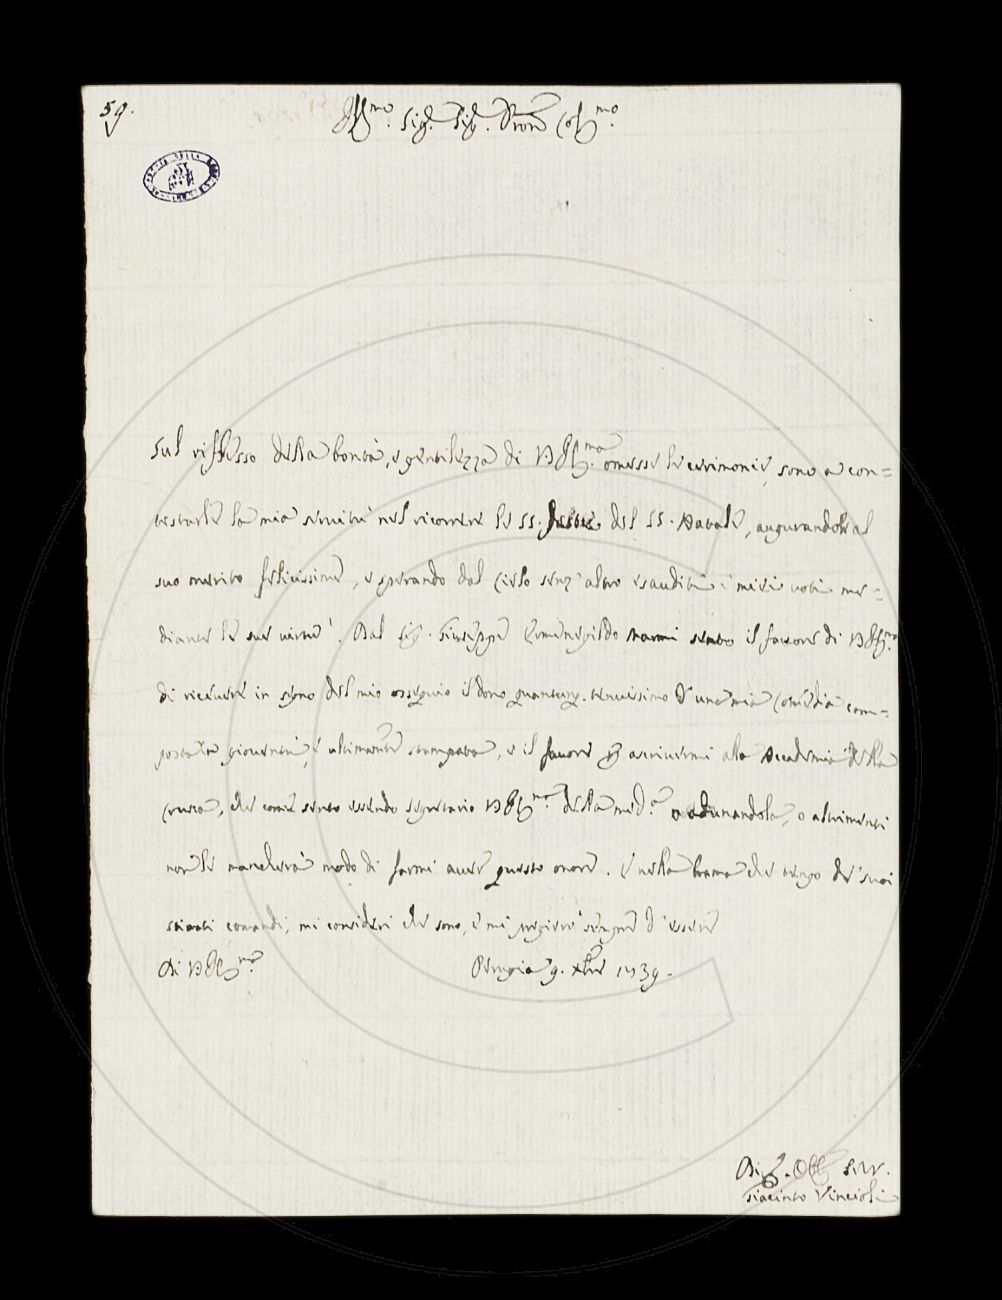 59.
Ill.mo Sig. Sig. Pron Col.mo
Sul riflesso della bontà, e gentilezza di V.S. Ill.ma omesse le cerimonie, sono a con=
testarle la mia servitù nel ricorrere le SS. feste del SS. Natale, augurandole al
suo merito felicissime, e sperando dal Cielo senz'altro esauditi i miei voti me=
diante le sue virtù. Dal Sig. Giuseppe Ermenegildo Nanni sento il favore di V.S. Ill.ma
di ricevere in segno del mio ossequio il dono quantunq. tenuissimo d'una mia Comedia com=
posta in gioventù, e ultimamente stampata, e il favore per ascrivermi alla Accademia della
Crusca, che come sento essendo segretario V.S. Ill.ma della med.a o adunandola, o altrimenti
non le mancherà modo di farmi aver questo onore. E nella brama che tengo de' suoi
stimati comandi, mi consideri che sono, e mi pregierò sempre d'essere
Di V.S. Ill.ma
Perugia 9. Xbre 1739.
Div. Obb. Serv.
Giacinto Vincioli